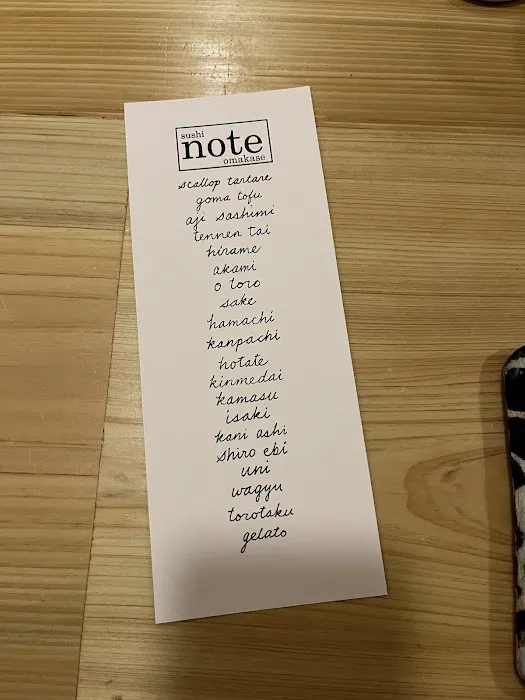 sushi
note
omakase
scallop tartare
goma tofu
aji sashimi
tennen tai
hirame
akami
o toro
sake
hamachi
kanpachi
hotate
kinmedai
kamasu
isaki
kani ashi
shiro ebi
uni
wagyu
torotaku
gelato